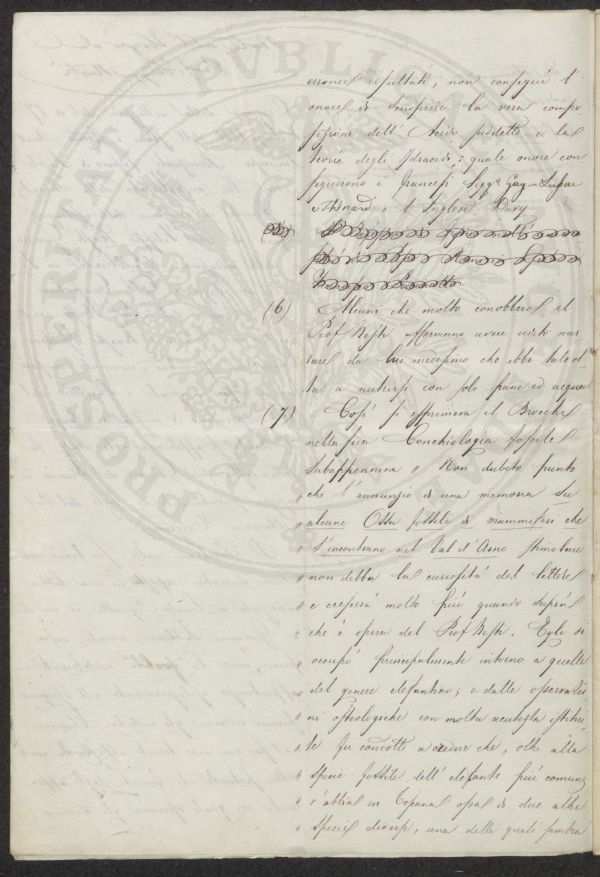 PROSPERITATI PVBLICAE
erronei resultati, non conseguì l'
onore di scuoprire la vera compo
sizione dell' Acido suddetto e la
teoria degli Idracidi; quale onore con
seguirono i Francesi Sigg.ri Gay-Lussac
e Thenard, e l' Inglese Davy
(6) Alcuni che molto conobbero il
Prof Nesti affermano avere udito nar
rare da lui medesimo che ebbe talvol
ta a nutrirsi con solo pane ed acqua
(7) Così si esprimeva il Brocchi
nella sua Conchiologia fossile
Subappennina " Non dubito punto
" che l'annunzio di una memoria Su
" alcune Ossa fossili di mammiferi che
" s'incontrano nel Val d'Arno stimolare
" non debba la curiosità del lettore
" e crescerà molto più quando saprà
" che è opera del Prof Nesti. Egli si
" occupò principalmente intorno a quelle
" del genere elefantino; e dalle osservazio
" ni osteologiche con molta acutezza istitui
" te fu condotto a credere che, oltre alla
" specie fossile dell' elefante più comune
" v'abbia in Toscana ossa di due altre
" specie diverse, una delle quali sembra